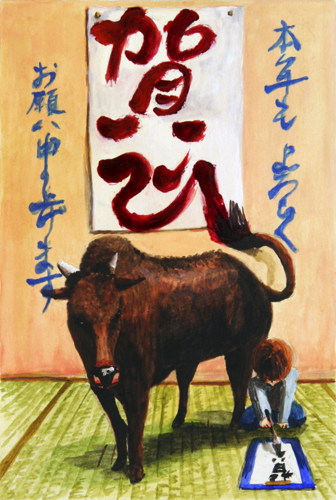 賀
本年もよろしく
お願い申し上げます